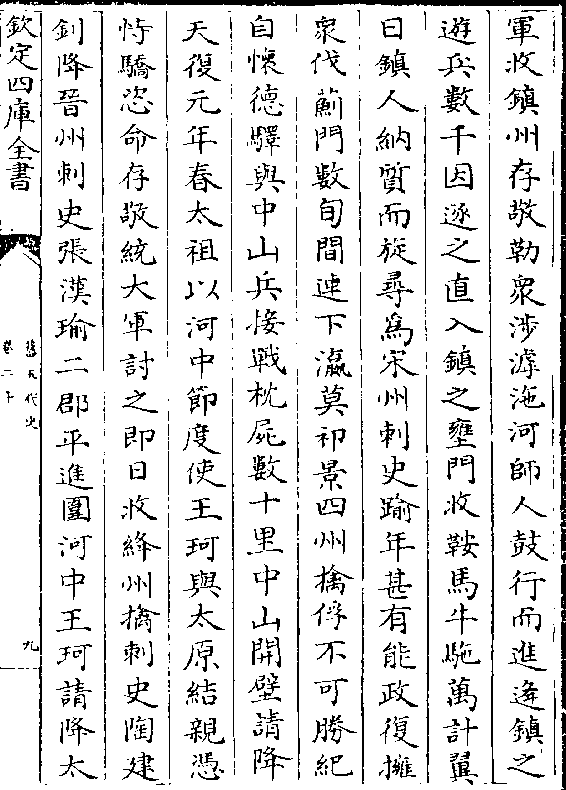 軍收鎮州存敬勒衆涉滹沲河師人鼓行而進逄鎮之
遊兵數千因逐之直入鎮之壅門收鞍馬牛駞萬計翼
日鎮人納質而旋尋為宋州刺史踰年甚有能政復擁
衆伐薊門數旬間連下瀛莫祁景四州擒俘不可勝紀
自懷德驛與中山兵接戰枕屍數十里中山開壁請降
天復元年春太祖以河中節度使王珂與太原結親憑
恃驕恣命存敬統大軍討之即日收絳州擒刺史陶建
釗降晉州刺史張漢瑜二郡平進圍河中王珂請降太
欽定四庫全書
舊五代史
卷二十
九